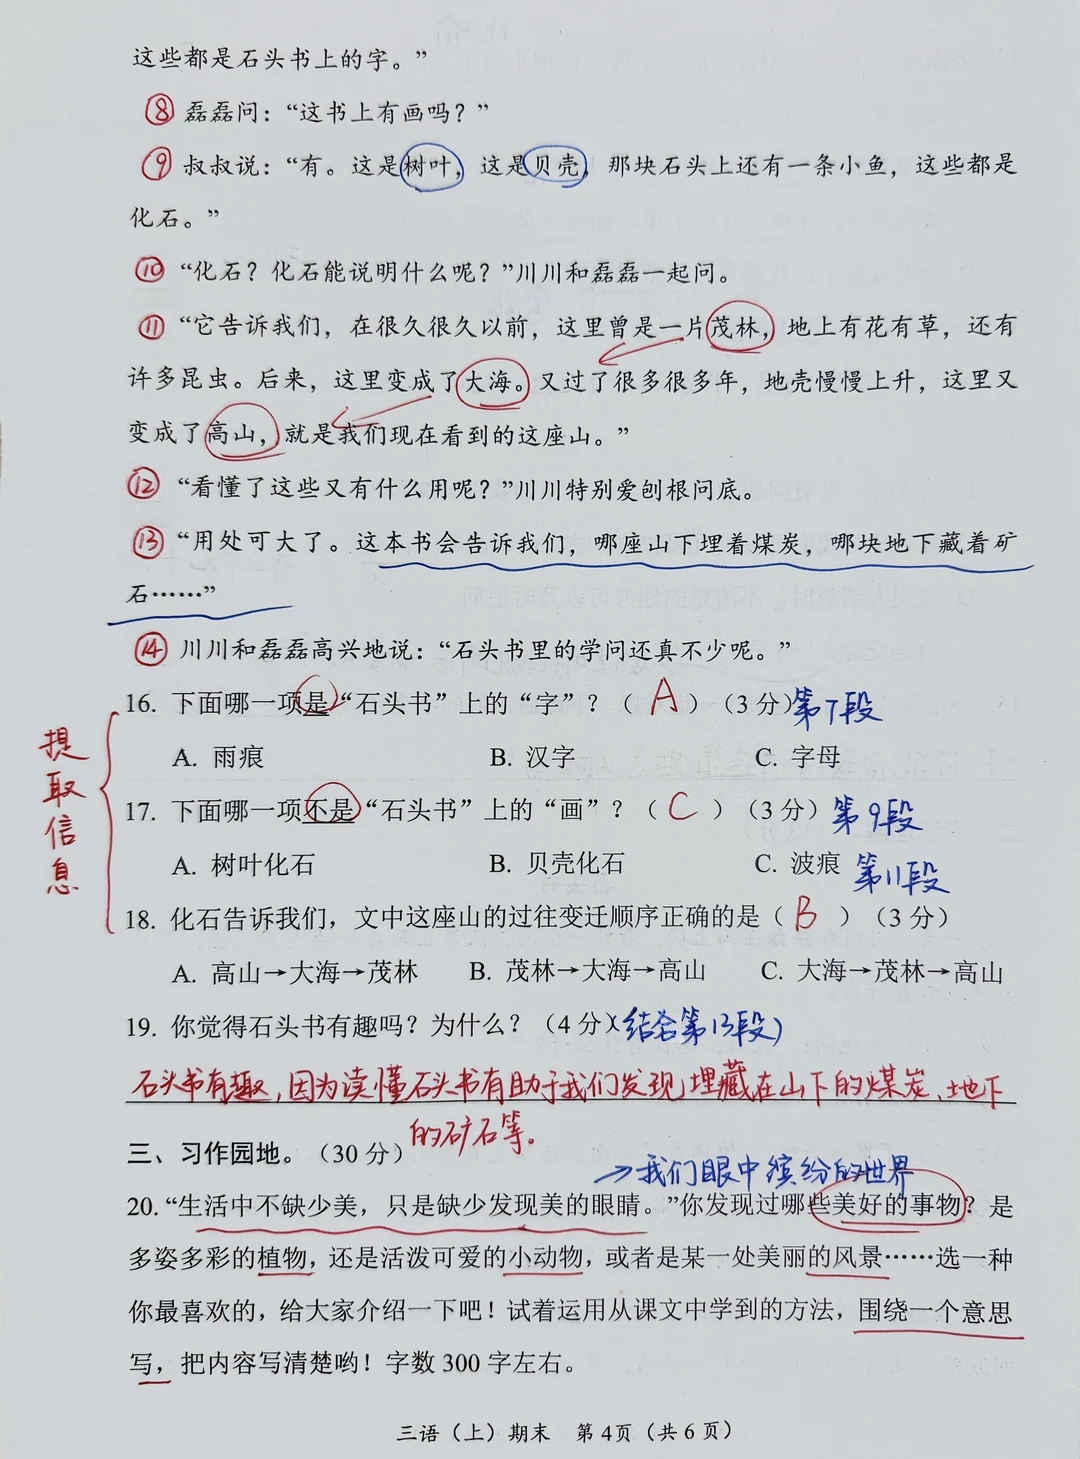 这些都是石头书上的字。”
⑧ 磊磊问：“这书上有画吗？”
⑨ 叔叔说：“有。这是树叶，这是贝壳，那块石头上还有一条小鱼，这些都是
化石。”
⑩ “化石？化石能说明什么呢？”川川和磊磊一起问。
⑪ “它告诉我们，在很久很久以前，这里曾是一片茂林，地上有花有草，还有
许多昆虫。后来，这里变成了大海。又过了很多很多年，地壳慢慢上升，这里又
变成了高山，就是我们现在看到的这座山。”
⑫ “看懂了这些又有什么用呢？”川川特别爱刨根问底。
⑬ “用处可大了。这本书会告诉我们，哪座山下埋着煤炭，哪块地下藏着矿
石……”
⑭ 川川和磊磊高兴地说：“石头书里的学问还真不少呢。”
提取信息
16. 下面哪一项是“石头书”上的“字”？（ A ）（3 分）第7段
A. 雨痕 B. 汉字 C. 字母
17. 下面哪一项不是“石头书”上的“画”？（ C ）（3 分）第9段
A. 树叶化石 B. 贝壳化石 C. 波痕 第11段
18. 化石告诉我们，文中这座山的过往变迁顺序正确的是（ B ）（3 分）
A. 高山→大海→茂林 B. 茂林→大海→高山 C. 大海→茂林→高山
19. 你觉得石头书有趣吗？为什么？（4 分）（结合第13段）
石头书有趣，因为读懂石头书有助于我们发现埋藏在山下的煤炭、地下
的矿石等。
三、习作园地。（30 分）
→我们眼中缤纷的世界
20. “生活中不缺少美，只是缺少发现美的眼睛。”你发现过哪些美好的事物？是
多姿多彩的植物，还是活泼可爱的小动物，或者是某一处美丽的风景……选一种
你最喜欢的，给大家介绍一下吧！试着运用从课文中学到的方法，围绕一个意思
写，把内容写清楚哟！字数 300 字左右。
三语（上）期末 第 4页（共 6 页）